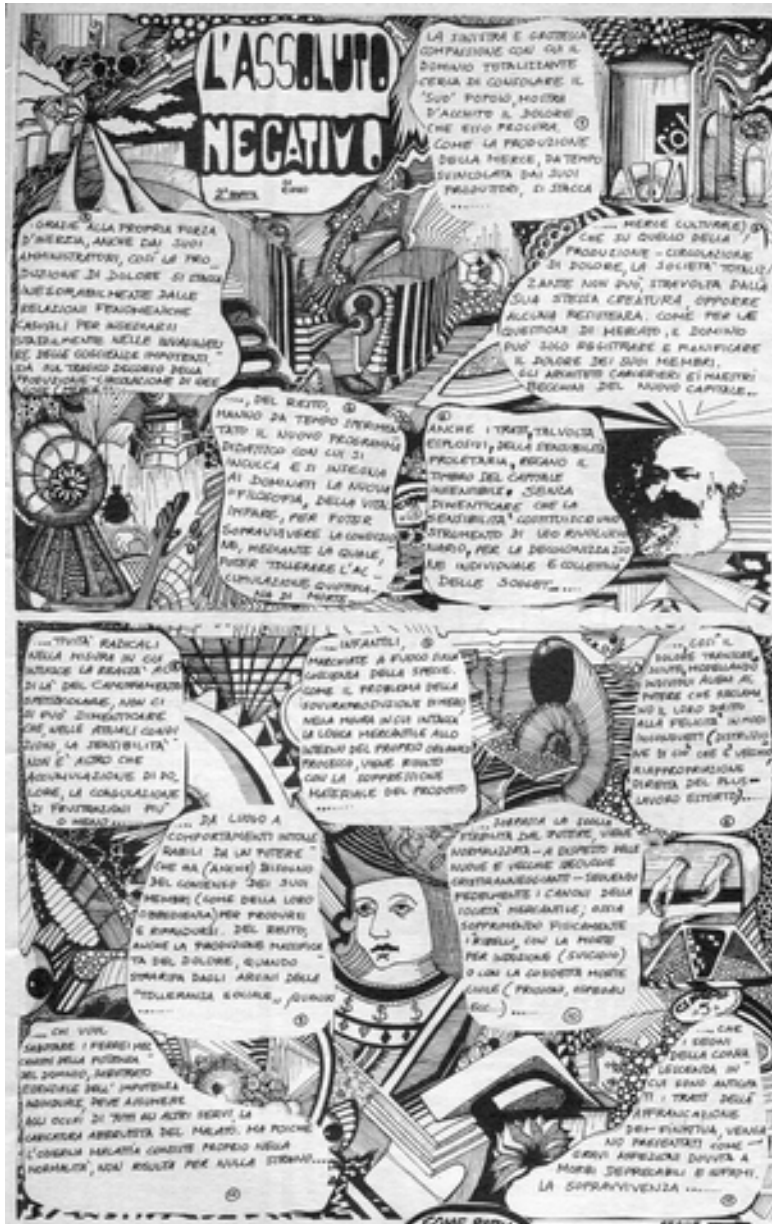 L'ASSOLUTO
NEGATIVO
2ª PARTE
LA SINISTRA E GROTTESCA
COMPASSIONE CON CUI IL
DOMINIO TOTALIZZANTE
CERCA DI CONSOLARE IL
"SUO" POPOLO, MOSTRA
D'ACCHITO IL DOLORE
CHE ESSO PROCURA. ①
COME LA PRODUZIONE
DELLA MERCE, DA TEMPO
SVINCOLATA DAI SUOI
PRODUTTORI, SI STACCA
.......
GRAZIE ALLA PROPRIA FORZA
D'INERZIA, ANCHE DAI SUOI
AMMINISTRATORI, COSÌ LA PRO
DUZIONE DI DOLORE SI STACCA
INESORABILMENTE DALLE
RELAZIONI FENOMENICHE
CASUALI PER INSEDIARSI
STABILMENTE NELLE
RE DELLE COSCIENZE IMPOTENTI.
SIA SUL TRAGICO DECORSO DELLA
PRODUZIONE-CIRCOLAZIONE DI IDEE
.... MERCE CULTURALE)
CHE SU QUELLO DELLA
PRODUZIONE - CIRCOLAZIONE
DI DOLORE, LA SOCIETA' TOTALIZ
ZANTE NON PUO', STRAVOLTA DALLA
SUA STESSA CREATURA, OPPORRE
ALCUNA RESISTENZA. COME PER LE
QUESTIONI DI MERCATO, IL DOMINIO
PUO' SOLO REGISTRARE E PIANIFICARE
IL DOLORE DEI SUOI MEMBRI.
GLI ARCHITETTI CARCERIERI E I MAESTRI
BECCHINI DEL NUOVO CAPITALE...
...., DEL RESTO,
HANNO DA TEMPO SPERIMEN
TATO IL NUOVO PROGRAMMA
DIDATTICO CON CUI SI
INCULCA E SI INSEGNA
AI DOMINATI LA NUOVA
"FILOSOFIA" DELLA VITA:
IMPARARE, PER POTER
SOPRAVVIVERE LA CONDIZIO
NE, MEDIANTE LA QUALE,
POTER TOLLERARE L'AC
CUMULAZIONE QUOTIDIA
NA DI MORTE
ANCHE I TRATTI, TALVOLTA
ESPLOSIVI, DELLA SENSIBILITÀ
PROLETARIA, RECANO IL
TIMBRO DEL CAPITALE
INSENSIBILE. SENZA
DIMENTICARE CHE LA
SENSIBILITA' COSTITUISCE UNO
STRUMENTO DI USO RIVOLUZIO
NARIO, PER LA DECOLONIZZAZIO
NE INDIVIDUALE E COLLETTIVA
DELLE SOGGET.....
....TIVITA' RADICALI
NELLA MISURA IN CUI
INTUISCE LA REALTA' AL
DI LA' DEL CAMUFFAMENTO
SPETTACOLARE, NON CI
SI PUO' DIMENTICARE
CHE, NELLE ATTUALI CONDI
ZIONI, LA SENSIBILITA'
NON E' ALTRO CHE
ACCUMULAZIONE DI DO
LORE, LA COAGULAZIONE
DI FRUSTRAZIONI PIU'
O MENO ....
.... INFANTILI,
MARCHIATE A FUOCO SULLA
COSCIENZA DELLA SPECIE.
COME IL PROBLEMA DELLA
SOVRAPRODUZIONE DI MERCI
NELLA MISURA IN CUI INTACCA
LA LOGICA MERCANTILE ALLO
INTERNO DEL PROPRIO ORGANICO
PROCESSO, VIENE RISOLTO
CON LA SOPPRESSIONE
MATERIALE DEL PRODOTTO
.......
.... COSÌ IL
DOLORE
MODELLANDO
INDIVIDUI ALIENI AL
POTERE CHE RECLAMA
NO IL LORO DIRITTO
ALLA FELICITA' IN MODI
INCONSUETI (DISTRUZIO
NE DI CIO' CHE E' VECCHIO,
RIAPPROPRIAZIONE
DIRETTA DEL PLUS-
LAVORO ESTORTO)...
.... DA LUOGO A
COMPORTAMENTI INTOLLE
RABILI DA UN POTERE
CHE HA (ANCHE) BISOGNO
DEL CONSENSO DEI SUOI
MEMBRI (COME DELLA LORO
OBBEDIENZA) PER PRODURSI
E RIPRODURSI. DEL RESTO,
ANCHE LA PRODUZIONE MASSIFICA
TA DEL DOLORE, QUANDO
STRARIPA DAGLI ARGINI DELLA
"TOLLERANZA SOCIALE",
.......
SORPASSA LA SOGLIA
STABILITA DAL POTERE, VIENE
NORMALIZZATA - A DISPETTO DELLE
NUOVE E VECCHIE IDEOLOGIE
CRISTIANEGGIANTI - SEGUENDO
FEDELMENTE I CANONI DELLA
SOCIETÀ MERCANTILE; OSSIA
SOPPRIMENDO FISICAMENTE
I RIBELLI, CON LA MORTE
PER (SUICIDIO)
O CON LA COSIDETTA MORTE
CIVILE (PRIGIONI, OSPEDALI
ECC...) .....
.... CHI VUOL
SABOTARE I FERREI MEC
CANISMI DELLA POTENZA
DEL DOMINIO, SUBSTRATO
ESSENZIALE DELL'IMPOTENZA
INDIVIDUALE, DEVE ASSUMERE
AGLI OCCHI DI TUTTI GLI ALTRI SERVI, LA
CARICATURA ABBRUTITA DEL MALATO. MA POICHE'
L'ODIERNA MALATTIA CONSISTE PROPRIO NELLA
NORMALITA', NON RISULTA PER NULLA STRANO...
.... CHE
I SEGNI
DELLA CONVA
LESCENZA IN
CUI SONO ANTICIPA
TI I TRATTI DELLA
AFFRANCAZIONE
DEFINITIVA, VENGA
NO PRESENTATI COME
GRAVI AFFEZIONI DOVUTE A
MORBI DEPRECABILI E INFAMI.
LA SOPRAVVIVENZA ......